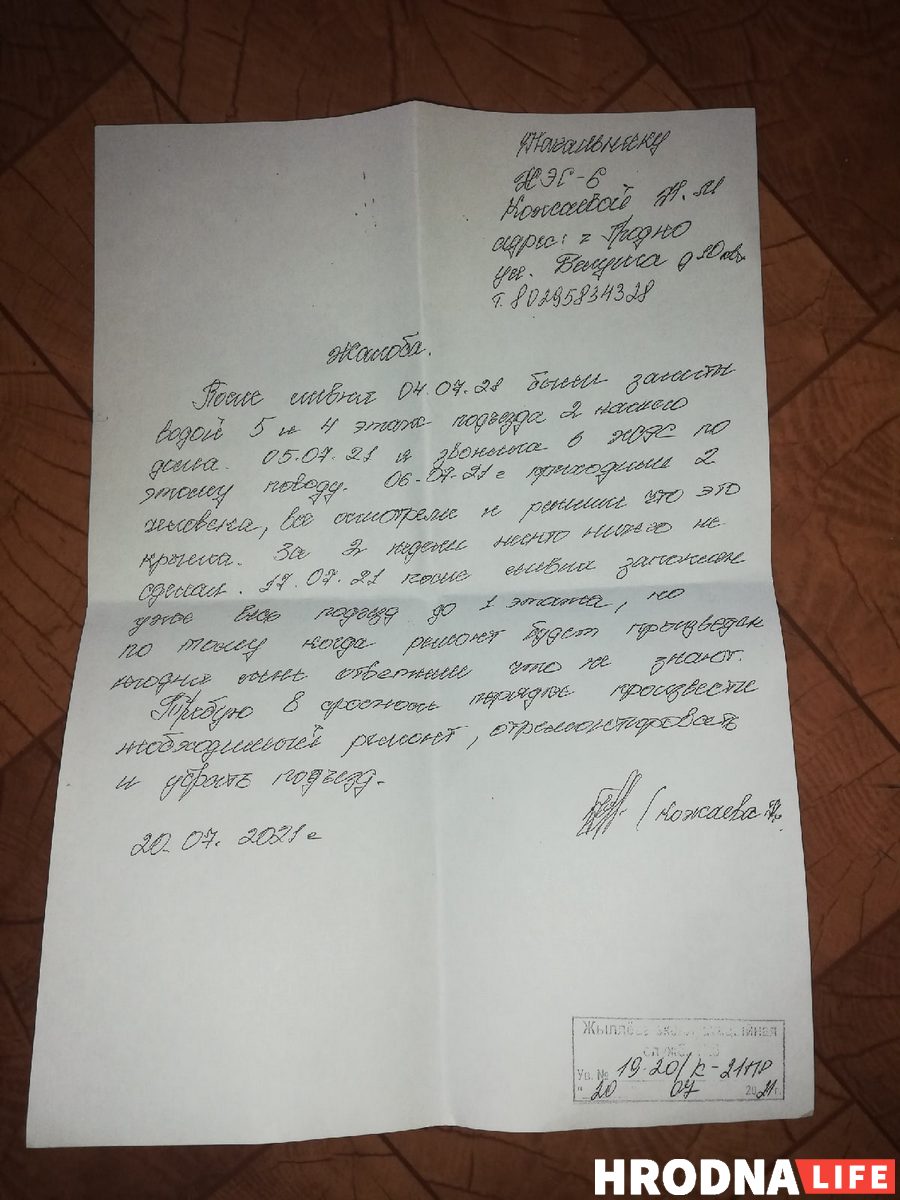 Начальнику
ЖЭС-6
Кожаевой Н.М
адрес: г Гродно
ул. Белуша д 10 кв
т. 80295834328
Жалоба.
После ливня 04.07.21 были залиты
водой 5 и 4 этаж подъезда 2 нашего
дома. 05.07.21 я звонила в ЖЭС по
этому поводу. 06.07.21 г приходили 2
человека, всё осмотрели и решили что это
крыша. За 2 недели никто ничего не
сделал. 17.07.21 после ливня заложен
уже весь подъезд до 1 этажа, но
по тому когда ремонт будет произведен
сегодня мне ответили что не знают.
Требую в срочном порядке произвести
необходимый ремонт, отремонтировать
и убрать подъезд.
20.07.2021 г
(Кожаева Н.
Жыллёва эксплуатацыйная
служба
Ув. № 19-20/к-21пр
"20 07 2021г.
HRODNA LIFE